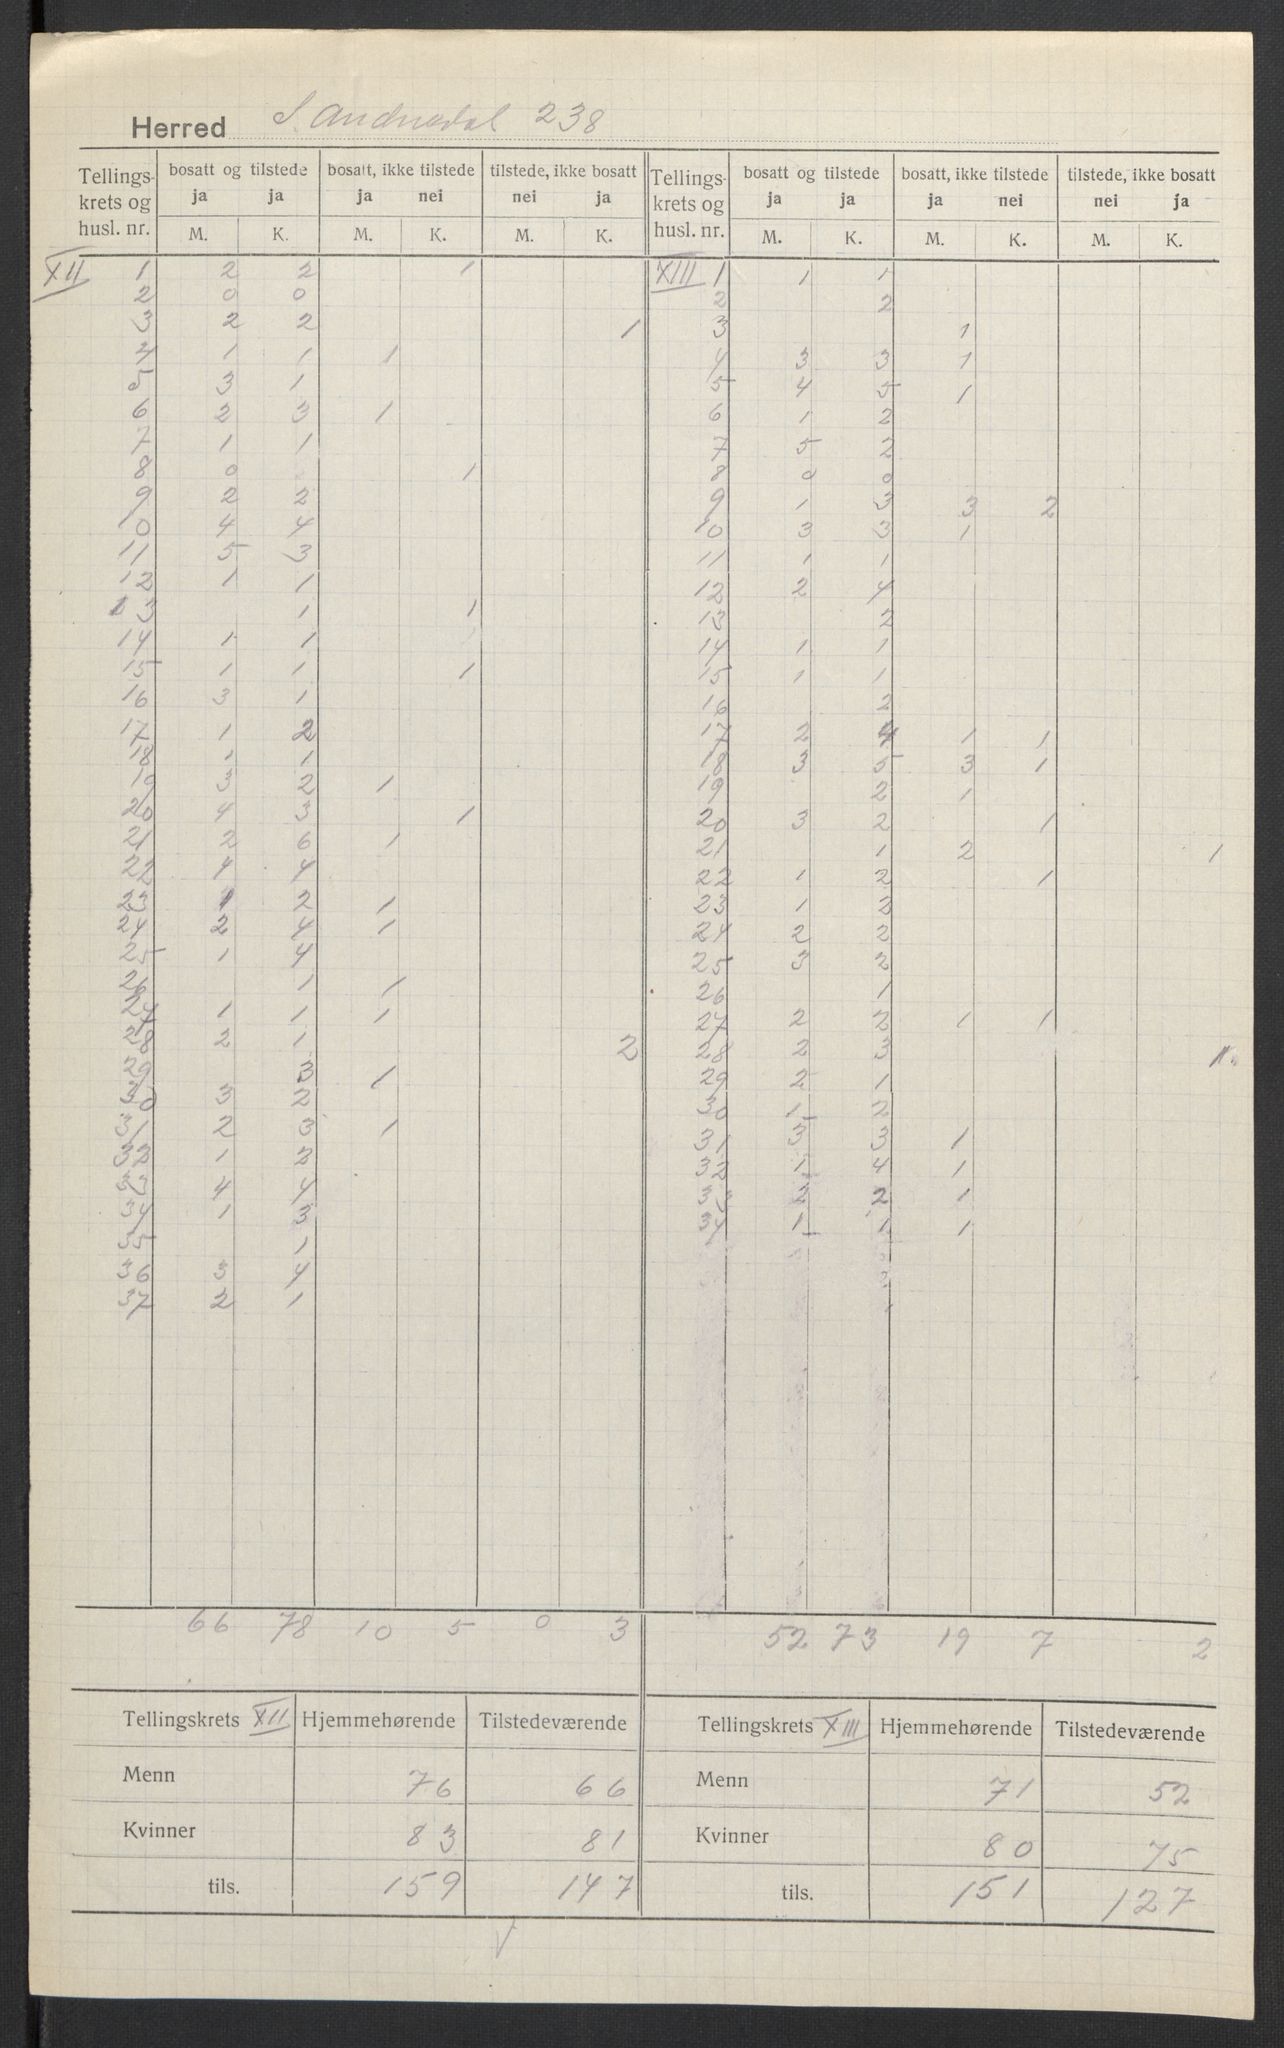 Herred S. Andnedal 238
Tellings- krets og husl. nr. | bosatt og tilstede ja ja | bosatt, ikke tilstede ja nei | tilstede, ikke bosatt nei ja | Tellings- krets og husl. nr. | bosatt og tilstede ja ja | bosatt, ikke tilstede ja nei | tilstede, ikke bosatt nei ja
M. K. M. K. M. K. M. K. M. K. M. K.
XII 1 2 2 1
2 0 0
3 2 2 1
4 1 1 1
5 3 1
6 2 3 1
7 1 1
8 0 1
9 2 2
10 4 4
11 5 3
12 1 1
13 1 1
14 1 1
15 1 1 1
16 3 1
17 1 2
18 1 1
19 3 2 1
20 4 3 1
21 2 6 1
22 4 4
23 2 1
24 2 4 1
25 1 4
26 1 1
27 1 1 1
28 2 1 2
29 3 1
30 3 2
31 2 3 1
32 1 2
33 4 4
34 1 3
35 1
36 3 4
37 2 1
66 78 10 5 0 3
XIII 1 1 1
2 2
3 1
4 3 3 1
5 4 5 1
6 1 2
7 5 2
8 0 0
9 1 3 3 2
10 3 3 1
11 1 1
12 2 4
13 2
14 1 1
15 1 1
16 2
17 2 4 1 1
18 3 5 3 1
19 2 1
20 3 2 1
21 1 2 1
22 1 2 1
23 1 2
24 2 2
25 3 2
26 1
27 2 2 1 1
28 2 3 1
29 2 1
30 1 2
31 3 3 1
32 1 4 1
33 2 2 1
34 1 1 1
52 73 19 7 2
Tellingskrets XII Hjemmehørende Tilstedeværende
Menn 76 66
Kvinner 83 81
tils. 159 147
Tellingskrets XIII Hjemmehørende Tilstedeværende
Menn 71 52
Kvinner 80 75
tils. 151 127